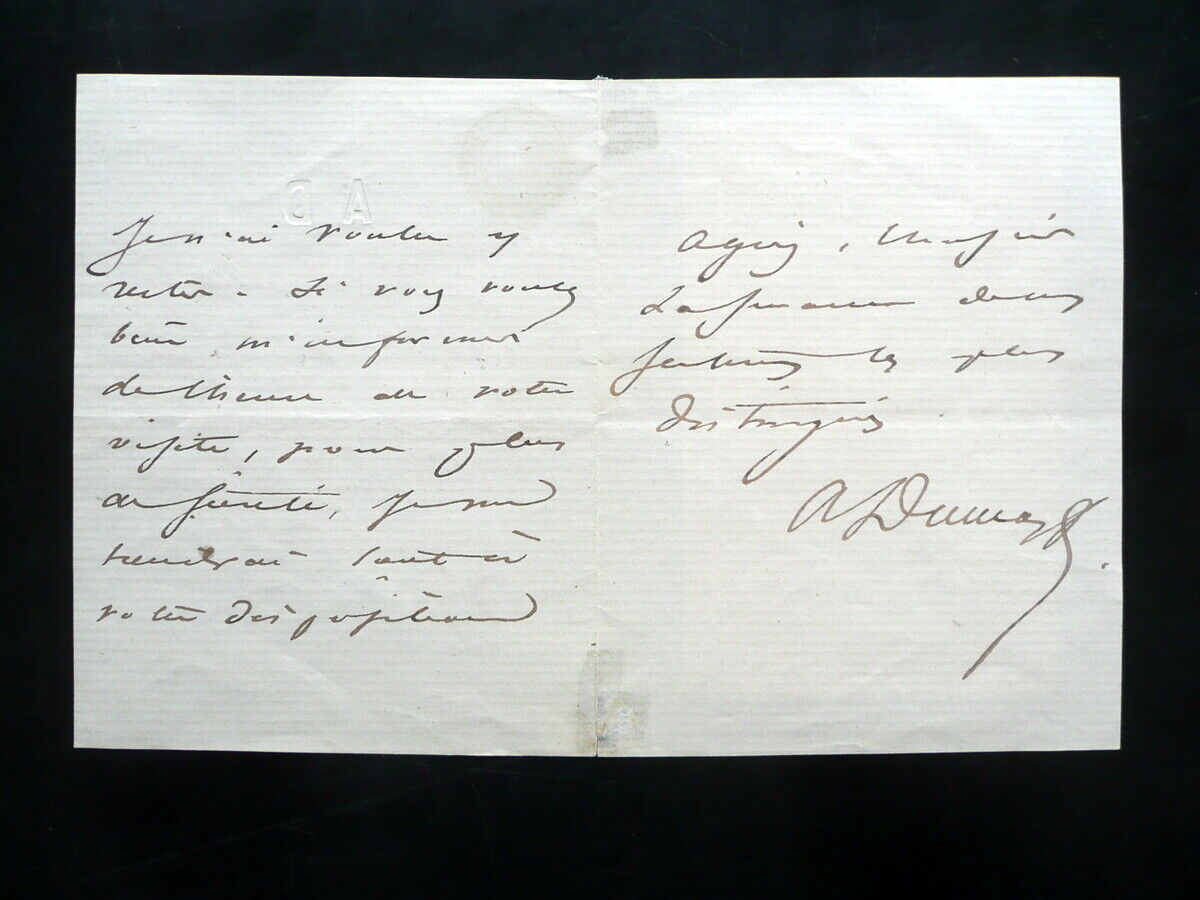 Je n'ai voulu y
rester. Si vous voulez
bien m'informer
de l'heure de votre
visite, pour plus
de sûreté, je me
tiendrai tout à
votre disposition
Agréez, Monsieur
l'assurance de mes
sentiments les plus
distingués
A Dumas f